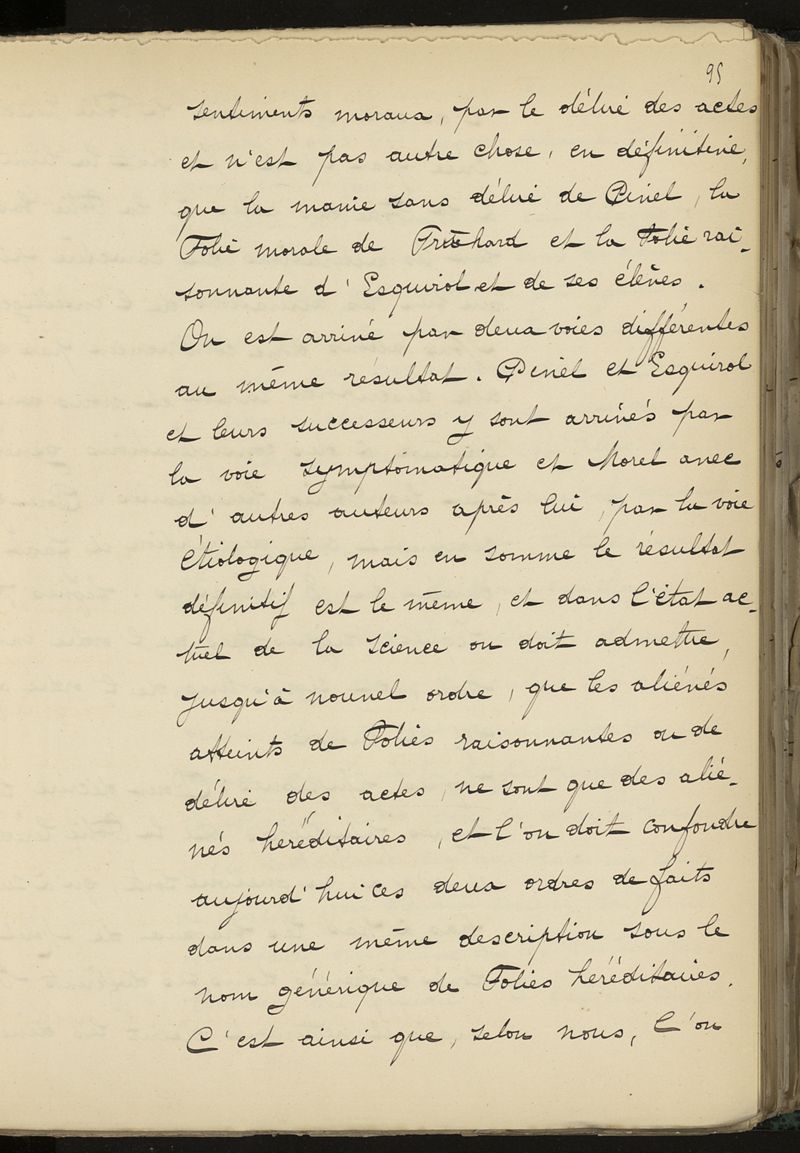 95
sentiments moraux, par le délire des actes
et n'est pas autre chose, en définitive,
que la manie sans délire de Pinel, la
Folie morale de Prichard et la Folie rai-
sonnante d'Esquirol et de ses élèves.
On est arrivé par deux voies différentes
au même résultat. Pinel et Esquirol
et leurs successeurs y sont arrivés par
la voie symptômatique et Morel avec
d'autres auteurs après lui, par la voie
étiologique, mais en somme le résultat
définitif est le même, et dans l'état ac-
tuel de la science on doit admettre,
jusqu'à nouvel ordre, que les aliénés
atteints de Folies raisonnantes ou de
délire des actes, ne sont que des alié-
nés heréditaires, et l'on doit confondre
aujourd'hui ces deux ordres de faits
dans une même description sous le
nom générique de Folies heréditaires.
C'est ainsi que, selon nous, l'on